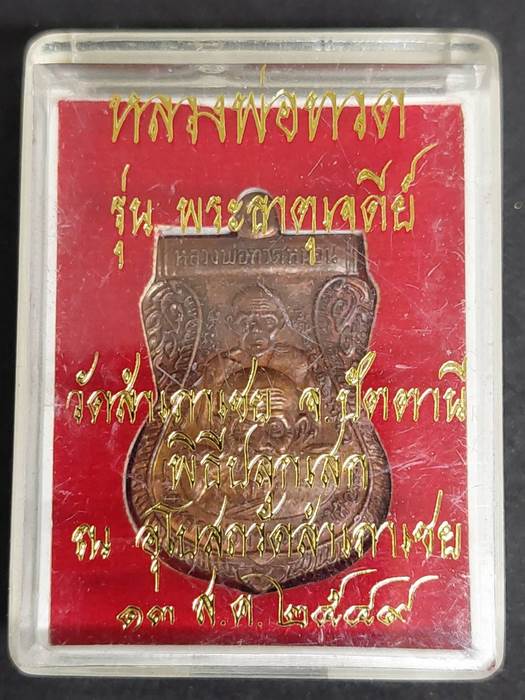 หลวงพ่อทวด
รุ่น พระธาตุเจดีย์
หลวงพ่อทวดเหยียบน
วัดสำเภาเชย จ.ปัตตานี
พิธีปลุกเสก
ณ อุโบสถวัดสำเภาเชย
๑๓ ส.ค. ๒๕๔๙